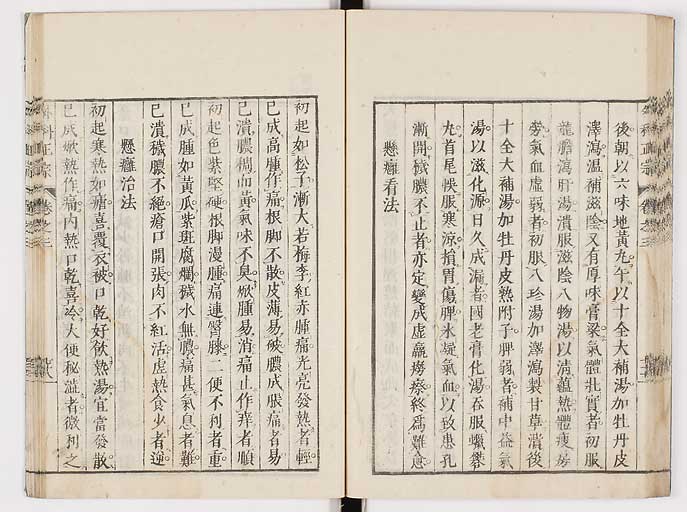 後朝以六味地黃丸午以十全大補湯加牡丹皮
澤瀉溫補滋陰又有厚味膏粱氣體壯實者初服
龍膽瀉肝湯潰服滋陰八物湯以清蘊熱體瘦房
勞氣血虛弱者初服八珍湯加澤瀉製甘草潰後
十全大補湯加牡丹皮熟附子脾弱者補中益氣
湯以滋化源日久成漏者國老膏化湯吞服蠟礬
丸首尾悞服寒涼損胃傷脾氷凝氣血以致患孔
漸開穢膿不止者亦定變成虛羸癆瘵終爲難愈
懸癰看法
初起如松子漸大若梅李紅赤腫痛光亮發熱者輕
已成高腫作痛根脚不散皮薄易破膿成脹痛者易
已潰膿稠而黃氣味不臭焮腫易消痛止作痒者順
初起色紫堅硬根脚漫腫痛連臀膝二便不利者重
已成腫如黃瓜紫斑腐爛穢水無膿痛甚氣息者難
已潰穢膿不絕瘡口開張肉不紅活虛熱食少者逆
懸癰治法
初起寒熱如瘧喜覆衣被口乾好飲熱湯宜當發散
已成焮熱作痛內熱口乾喜冷大便秘澁者微利之